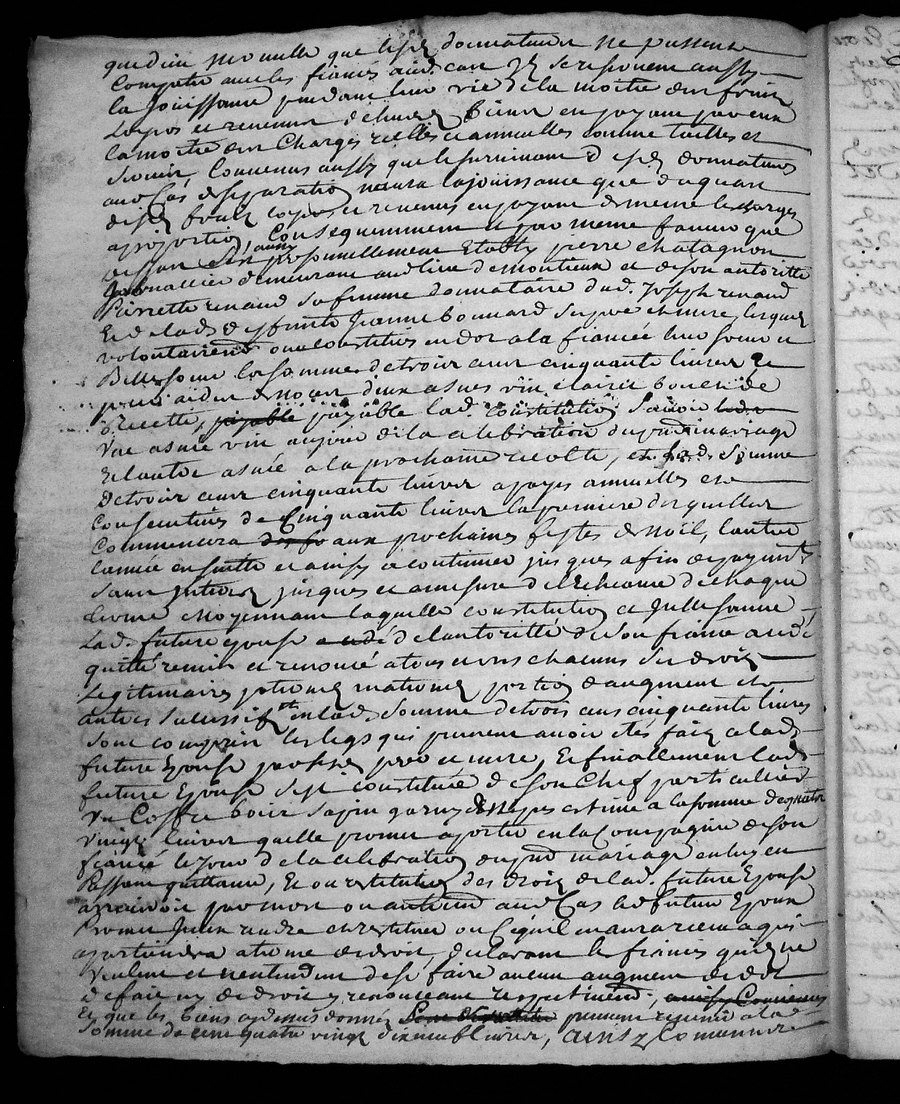 que d'un meuble que lesd. donnateurs ne pussent
Compatir avec les fiancés aud. cas Ils se reservent aussy
la jouissance pendant leur vie de la moitié des fonds
Laqios et revenus desdits Biens en payant par eux
la moitié des Charges reelles et annuelles comme tailles et
servis, Convenus aussy que le survivant desd. donnateurs
aud. Cas de separation n'aura la jouissance que du quart
desd. fonds et revenus en payant de meme les charges
a proportion, Consequemment et par meme faveur que
dessus Est aussy personnellement Etably pierre chatagnon
Journallier demeurant au lieu de montreux et de son autoritté
Pierrette renaud sa femme donnataire dud. Joseph renaud
Et de lad. deffunte Jeanne bonnard ses pere et mere, lesquels
volontairement ont constitués en dot a la fiancée leur soeur et
Belle soeur la somme de trois cent cinquante livres et
pour aider des noces deux asnées vin clairet bon et de
Recette, payable payable lad. Constitution Savoir
Une asnée vin au jour de la celebration du present mariage
Et l'autre asnée a la prochaine recolte, et lad. Somme
de trois cent cinquante livres a payes annuelles et
Consecutives de Cinquante livres la premiere desquelles
Commencera aux prochaines festes de Noël, l'autre
l'année ensuitte et ainsy a continuer jusques a fin de payement
Sans Interest jusques et a mesure de l'Echeance de chaque
terme Moyennant laquelle constitution et Icelle somme
Lad. future epouse de l'autoritté de son fiancé a cedé
quitté remis et renoncé a tous et uns chacuns ses droits
Legitimaires paternels maternels portion d'augment et
autres Successifs, en lad. Somme de trois cens cinquante livres
sont compris les legs qui peuvent avoir étés faits a lad.
future Epouse par sesd. pere et mere, Et finallement lad.
future Epouse s'est constituée de son Chef particullier
Un Coffre bois sapin garny de ses nipes estimé a la somme de quatre
Vingt livres quelle promet aporter en la Compagnie de son
fiancé le jour de la celebration dupnt mariage en luy en
Passant quittance, Et ou restitution des droits de lad. future Epouse
arriveroit par mort ou autrement aud. Cas led. futur Epoux
Promet Iceux rendre et restituer ou lesquels en aura receu a qui
apartiendra a forme de droit, declarant les fiancés quils ne
Veulent et n'entendent de se faire aucun augment de dot
de fait ny de droit y renonceant respectivement, ainsy Convenus
Et que les biens cy dessus donnés peuvent revenir a la
Somme de cent quatre vingt dix neuf livres, ainsy Comme